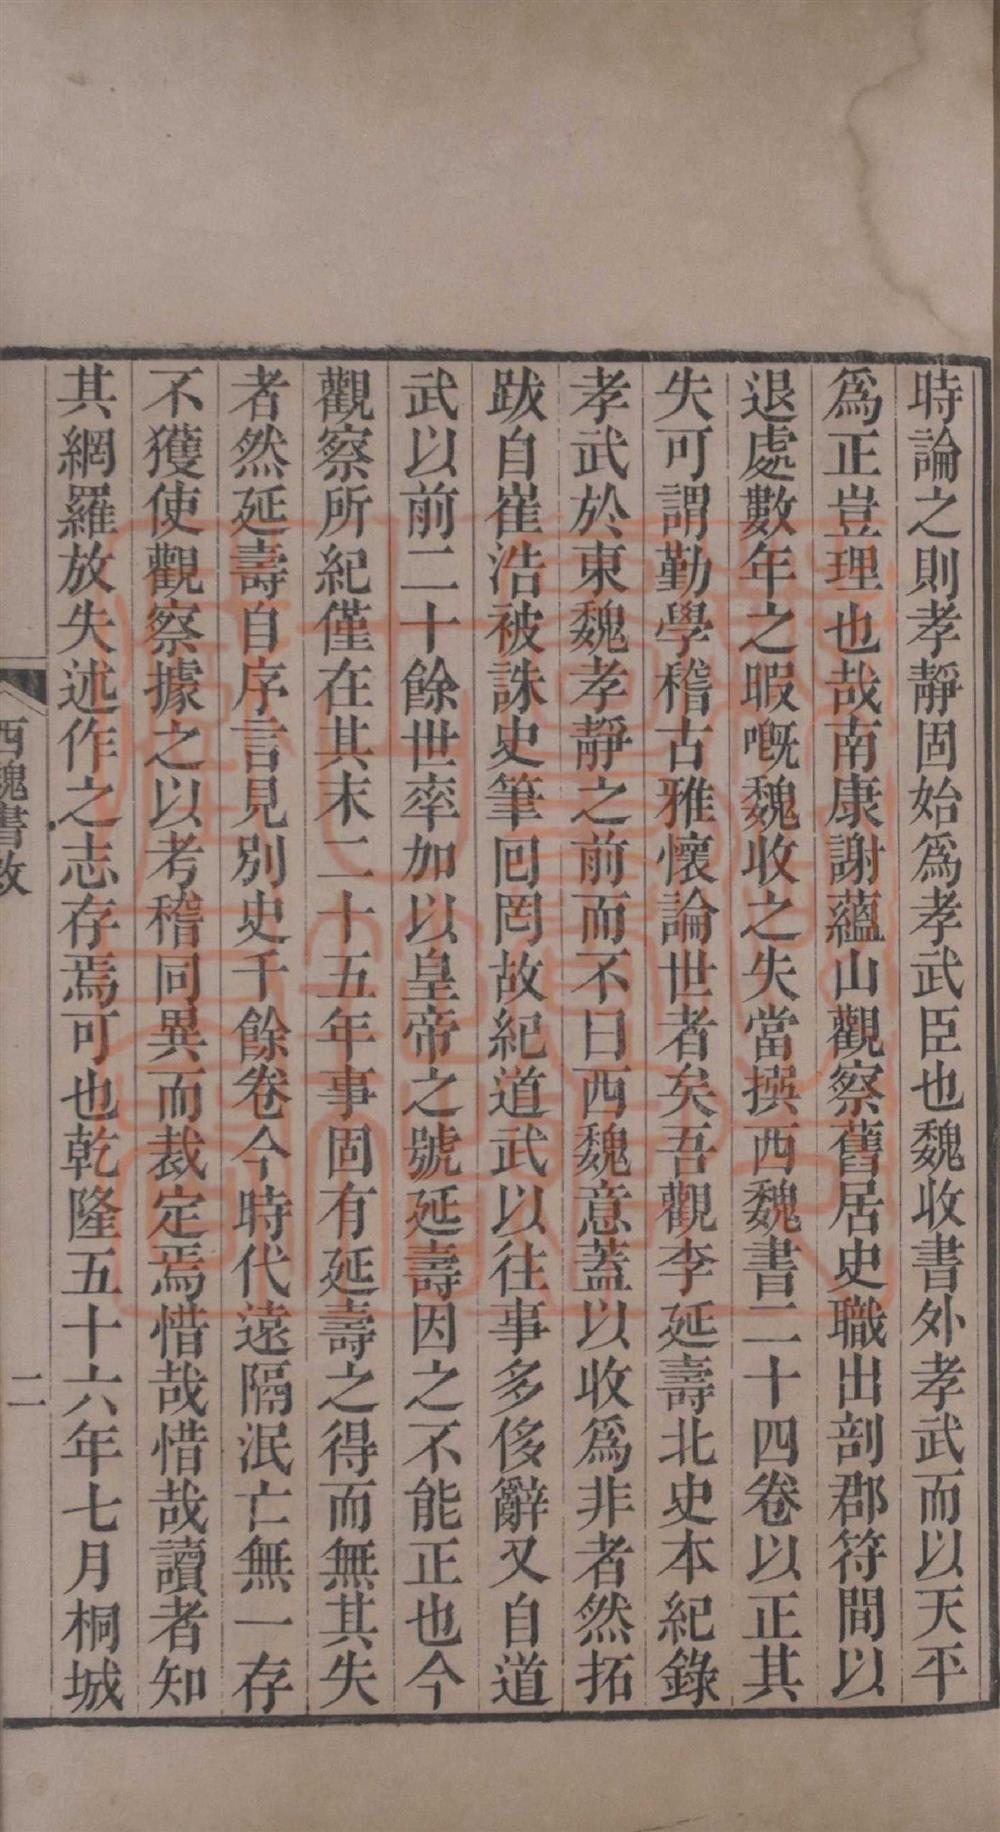 時論之則孝靜固始爲孝武臣也魏收書外孝武而以天平
爲正豈理也哉南康謝蘊山觀察舊居史職出剖郡符間以
退處數年之暇嘅魏收之失當撰西魏書二十四卷以正其
失可謂勤學稽古雅懷論世者矣吾觀李延壽北史本紀錄
孝武於東魏孝靜之前而不曰西魏意蓋以收爲非者然拓
跋自崔浩被誅史筆囘罔故紀道武以往事多侈辭又自道
武以前二十餘世率加以皇帝之號延壽因之不能正也今
觀察所紀僅在其末二十五年事固有延壽之得而無其失
者然延壽自序言見別史千餘卷今時代遠隔泯亡無一存
不獲使觀察據之以考稽同異而裁定焉惜哉惜哉讀者知
其網羅放失述作之志存焉可也乾隆五十六年七月桐城
西魏書敘
二